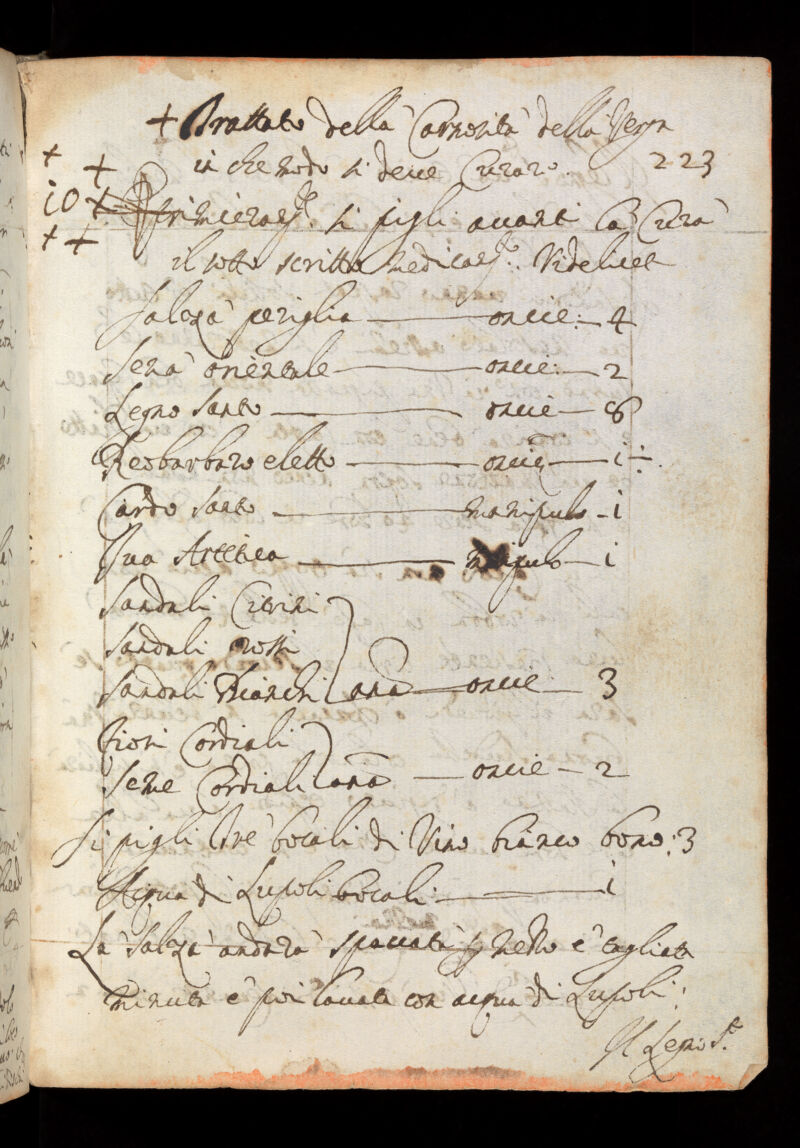 + Trattato della Carnosità della Verga
in che modo si deve Curare. 223
10 Primieram.te si pigli avanti la Cura
il sotto scritto medicam.to Videlicet
Salza periglia — oncie: — 4
Sena orientale — oncie: — 2
Legno Santo — oncie — 8
Reobarbaro eletto — oncia — i ÷
Cardo Santo — manipulo — i
Iva Artetica — manipulo — i
Sandali Citrini
Sandali rossi
Sandali Bianchi ana — oncie — 3
Fiori Cordiali
Seme Cordiali ana — oncie — 2
Si pigli tre bocali di Vino bianco bono: 3
Acqua di Lupoli bocali — i
mezzo
La Salza andarà spaccata per mezzo e tagliata
minuta e poi lavata con acqua di Lupoli:
Il Legno S.to